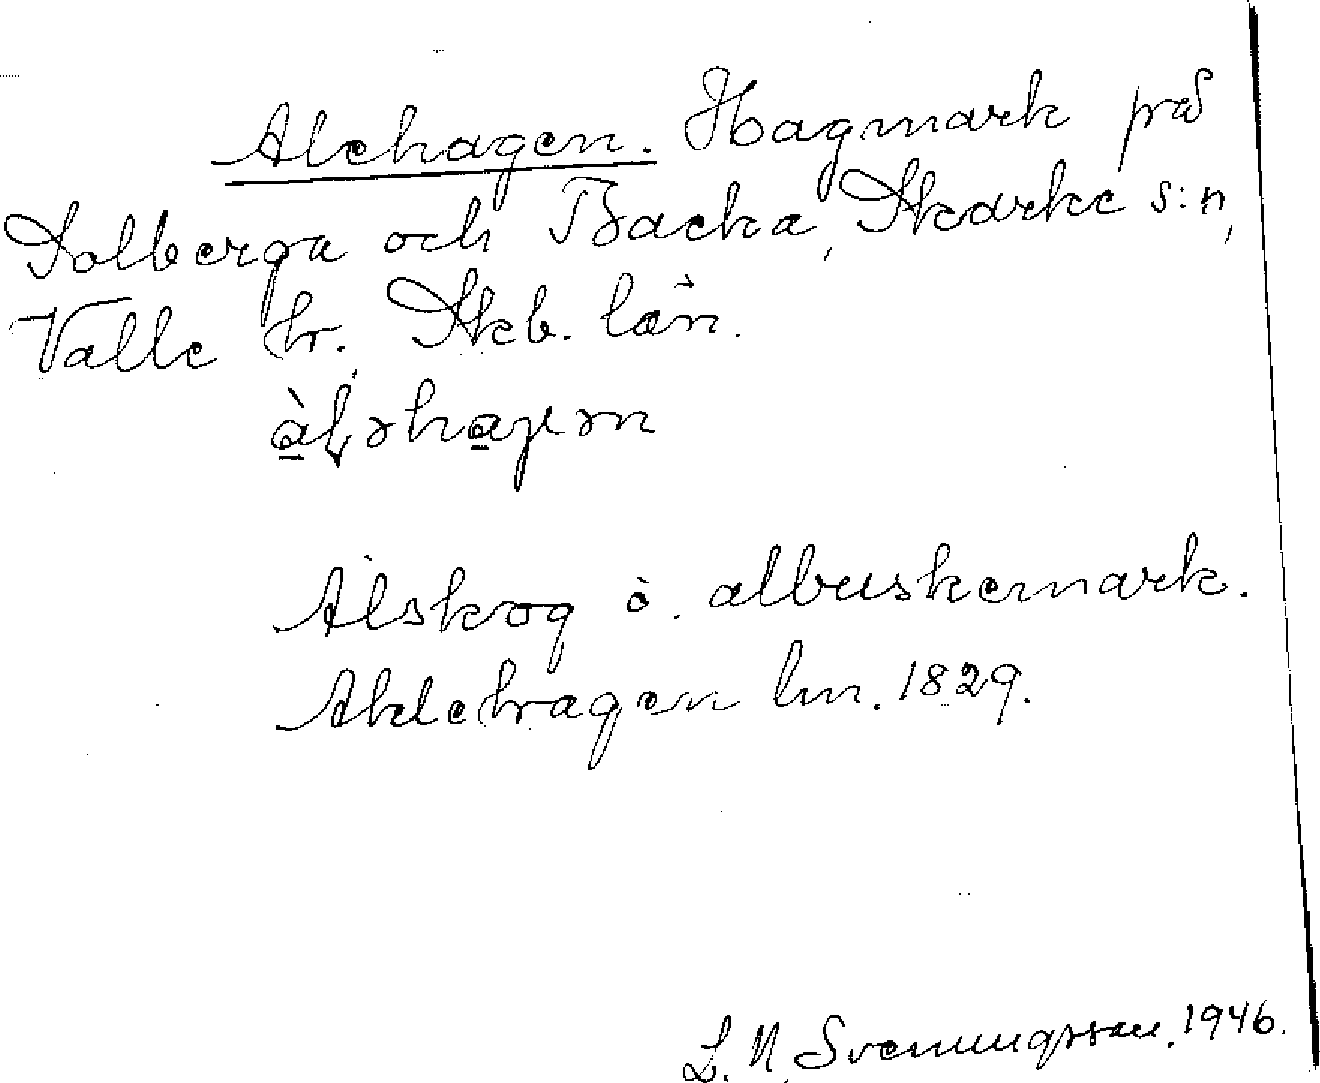 Alehagen. Hagmark på
Solberga och Backa, Skärke s:n,
Valle hr. Skb. län.
Alskog o. albuskemark.
Ahlehagen lm. 1829.
L. N. Svenungsson. 1946.